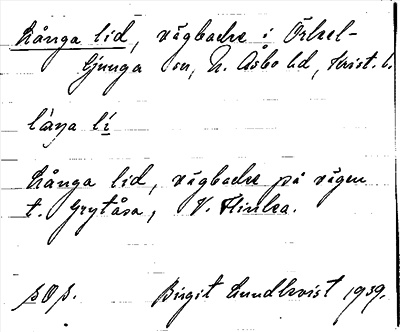 Långa lid, vägbacke i Örkel-
ljunga sn, N. Åsbo hd, Krist. l.
låŋa lí
Långa lid, vägbacke på vägen
t. Grytåsa, V. Flinka.
sOs. Birgit Lundkvist 1939.